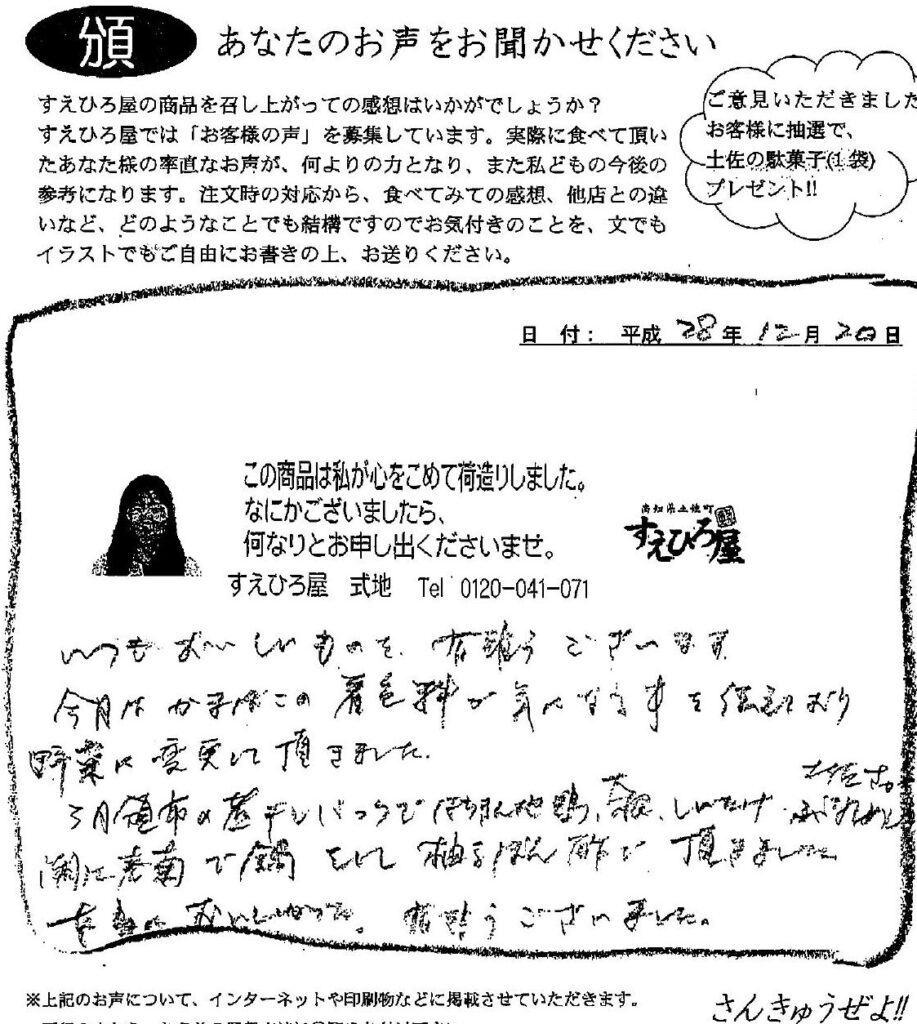 頒 あなたのお声をお聞かせください
すえひろ屋の商品を召し上がっての感想はいかがでしょうか？
すえひろ屋では「お客様の声」を募集しています。実際に食べて頂い
たあなた様の率直なお声が、何よりの力となり、また私どもの今後の
参考になります。注文時の対応から、食べてみての感想、他店との違
いなど、どのようなことでも結構ですのでお気付きのことを、文でも
イラストでもご自由にお書きの上、お送りください。
ご意見いただきました
お客様に抽選で、
土佐の駄菓子(1袋)
プレゼント!!
日 付： 平成 28年 12月 20日
この商品は私が心をこめて荷造りしました。
なにかございましたら、
何なりとお申し出くださいませ。
すえひろ屋 式地 Tel 0120-041-071
高知県土佐町
すえひろ屋
いつもおいしいものを、有難うございます
今月はかまぼこの着色料が気になる事を伝えており
野菜に変更して頂きました。
土佐
3月頒布の しいたけ
で鍋をして柚子ぽん酢で頂きました
本当においしかった。有難うございました。
※上記のお声について、インターネットや印刷物などに掲載させていただきます。
さんきゅうぜよ!!